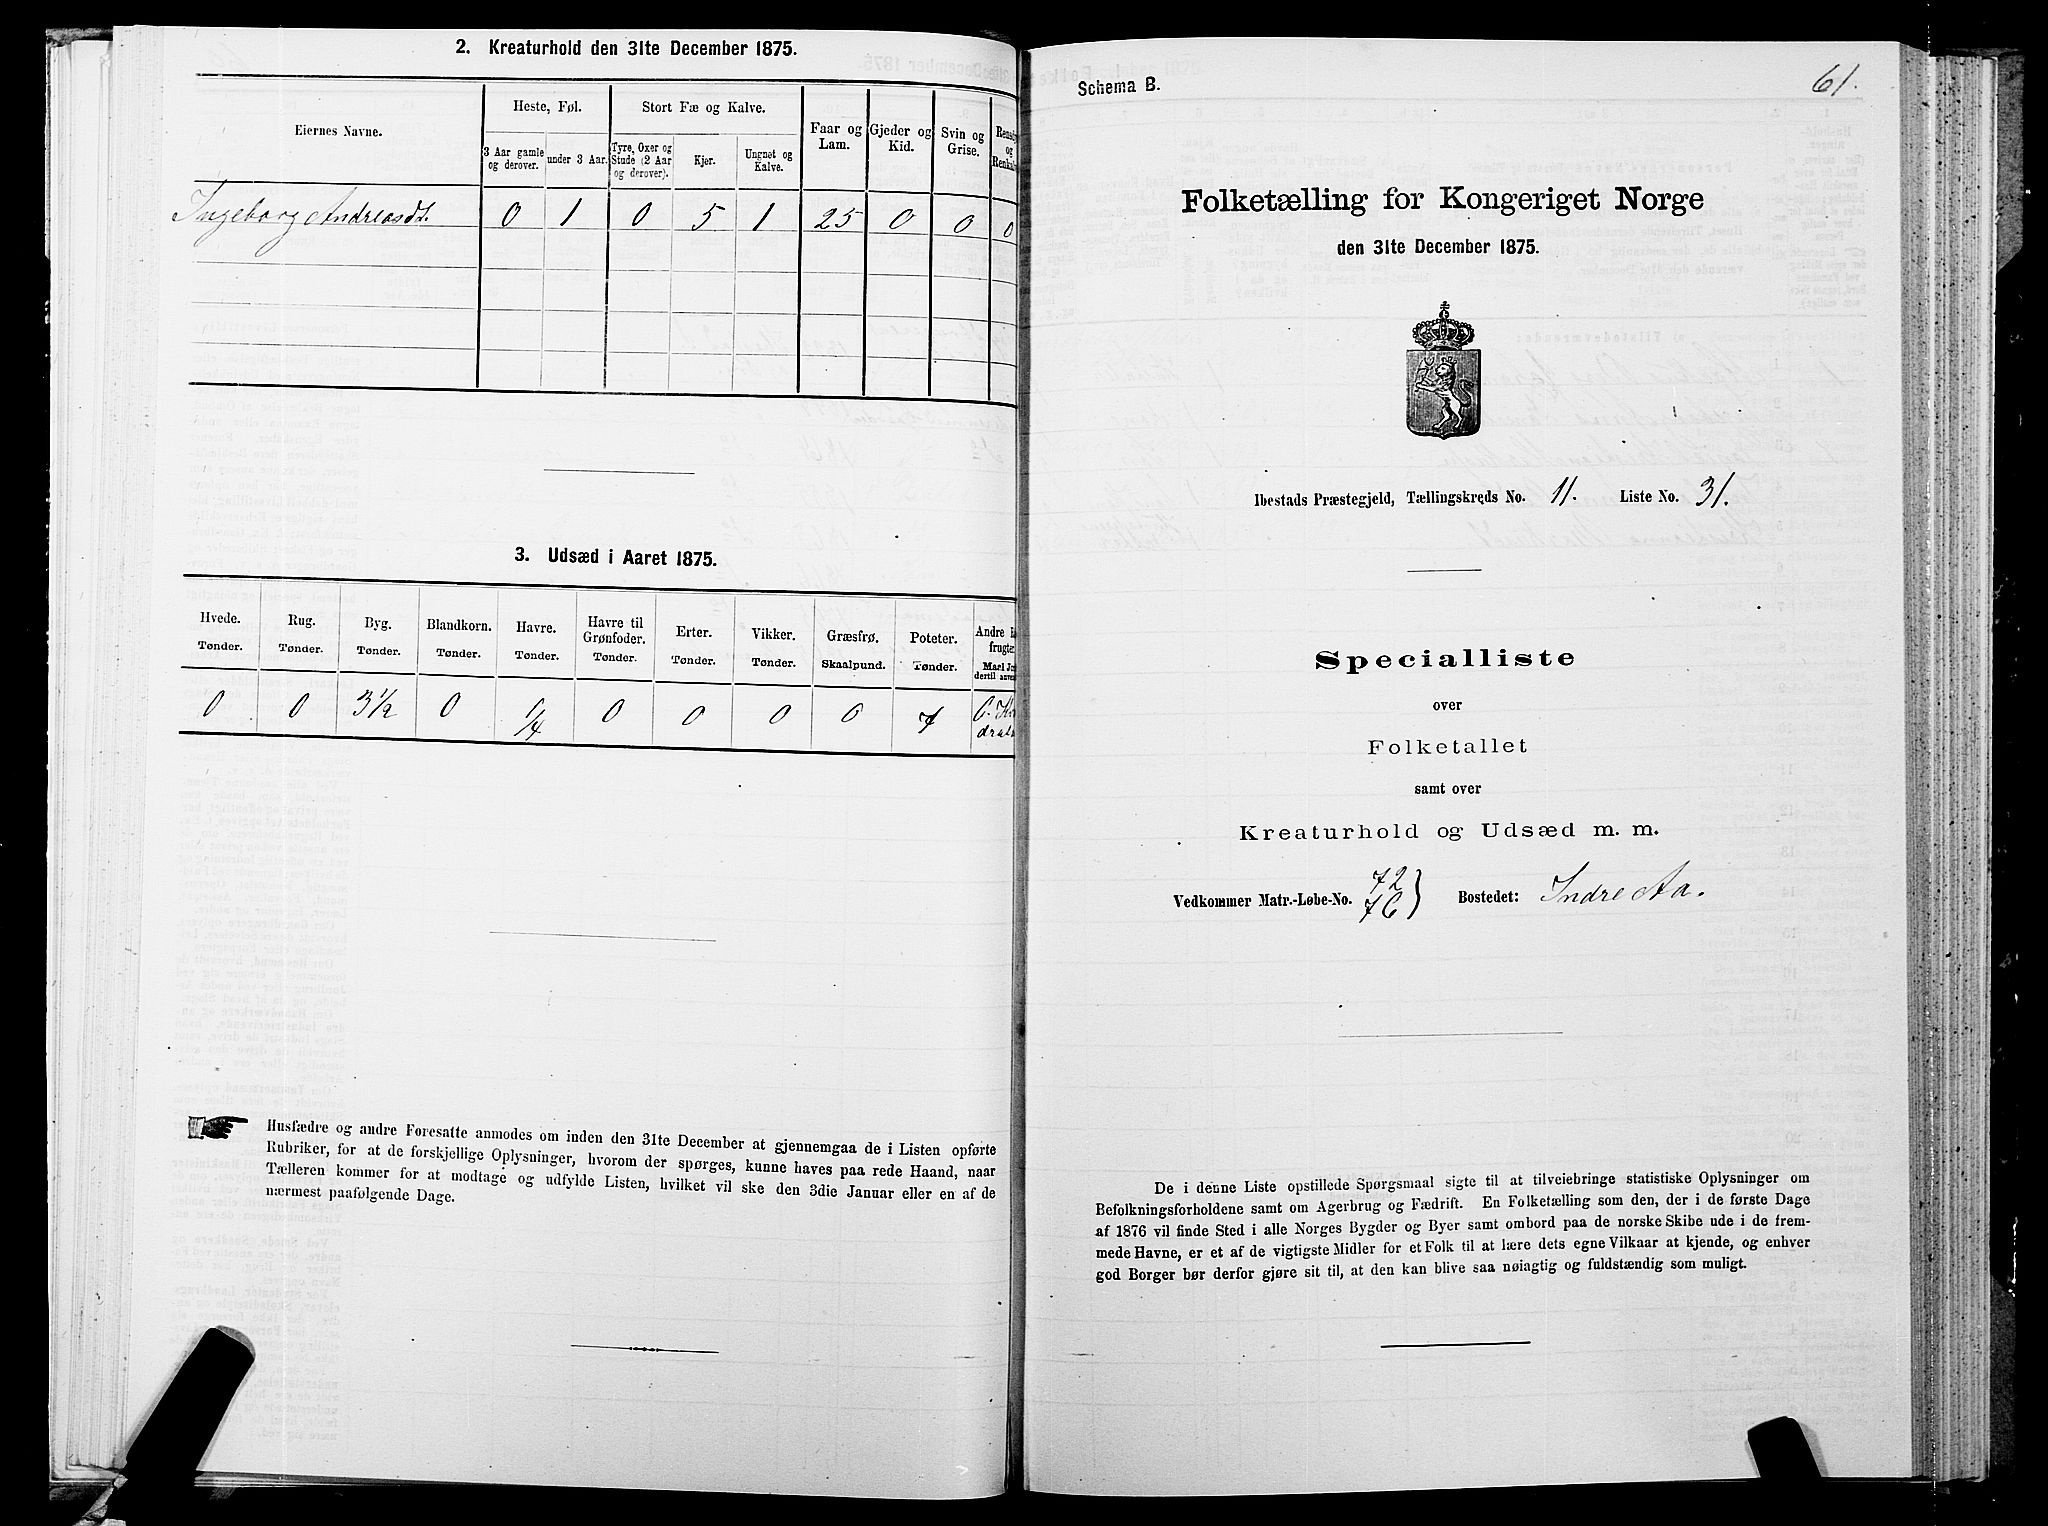 2. Kreaturhold den 31te December 1875.
Eiernes Navne.
Heste, Føl.
Stort Fæ og Kalve.
Faar og Lam.
Gjeder og Kid.
Svin og Grise.
og
3 Aar gamle og derover.
under 3 Aar.
Tyre, Oxer og Stude (2 Aar og derover).
Kjør.
Ungnøt og Kalve.
Ingeborg Andreasdt. 0 1 0 5 1 25 0 0 0
3. Udsæd i Aaret 1875.
Hvede. Tønder.
Rug. Tønder.
Byg. Tønder.
Blandkorn. Tønder.
Havre. Tønder.
Havre til Grønfoder. Tønder.
Erter. Tønder.
Vikker. Tønder.
Græsfrø. Skaalpund.
Poteter. Tønder.
Andre
0 0 3 1/2 0 1/4 0 0 0 0 7
Husfædre og andre Foresatte anmodes om inden den 31te December at gjennemgaa de i Listen opførte
Rubriker, for at de forskjellige Oplysninger, hvorom der spørges, kunne haves paa rede Haand, naar
Tælleren kommer for at modtage og udfylde Listen, hvilket vil ske den 3die Januar eller en af de
nærmest paafølgende Dage.
61.
Schema B.
Folketælling for Kongeriget Norge
den 31te December 1875.
Ibestads Præstegjeld, Tællingskreds No. 11. Liste No. 31.
Specialliste
over
Folketallet
samt over
Kreaturhold og Udsæd m. m.
Vedkommer Matr.-Løbe-No. 72 76 } Bostedet: Indre Aa.
De i denne Liste opstillede Spørgsmaal sigte til at tilveiebringe statistiske Oplysninger om
Befolkningsforholdene samt om Agerbrug og Fædrift. En Folketælling som den, der i de første Dage
af 1876 vil finde Sted i alle Norges Bygder og Byer samt ombord paa de norske Skibe ude i de frem-
mede Havne, er et af de vigtigste Midler for et Folk til at lære dets egne Vilkaar at kjende, og enhver
god Borger bør derfor gjøre sit til, at den kan blive saa nøiagtig og fuldstændig som muligt.